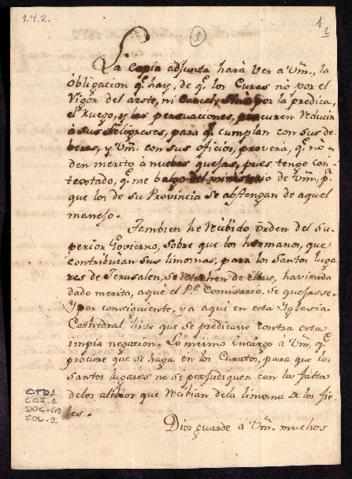 1.4.2.
1
1
La copia adjunta hará ver a Vm., la
obligacion q.e hay, de q.e los Curas no por el
Vigor del azote, ni Carcel, sino por la predica,
el Ruego, y las persuaciones, procuren reducir
a sus feligreses, para q.e cumplan con sus de-
beres, y Vm. con sus oficios, proverá, q.e no
den merito à nuebas quejas, pues tengo con-
textado, q.e me balgo del ministerio de Vm. p.a
que los de su Provincia se abstengan de aquel
manejo.
Tambien he recibido orden del Su-
perior Govierno, sobre que los hermanos, que
contribuian sus limosnas, para los Santos luga-
res de Jerusalen, se de
haviendo
dado merito, aque el P.e Comisario se quejase.
Y por consiguiente, ya aqui en esta Yglesia
Cathedral, hise que se predicase contra esta
impia negacion. Lo mismo encargo à Vm. q.e
procure que se haga en los Curatos, para que los
Santos lugares no se perjudiquen con la falta
delos
que recibian dela limosna de los fie-
les.
Dios guarde a Vm. muchos
CTD1
DOC
FOL-2